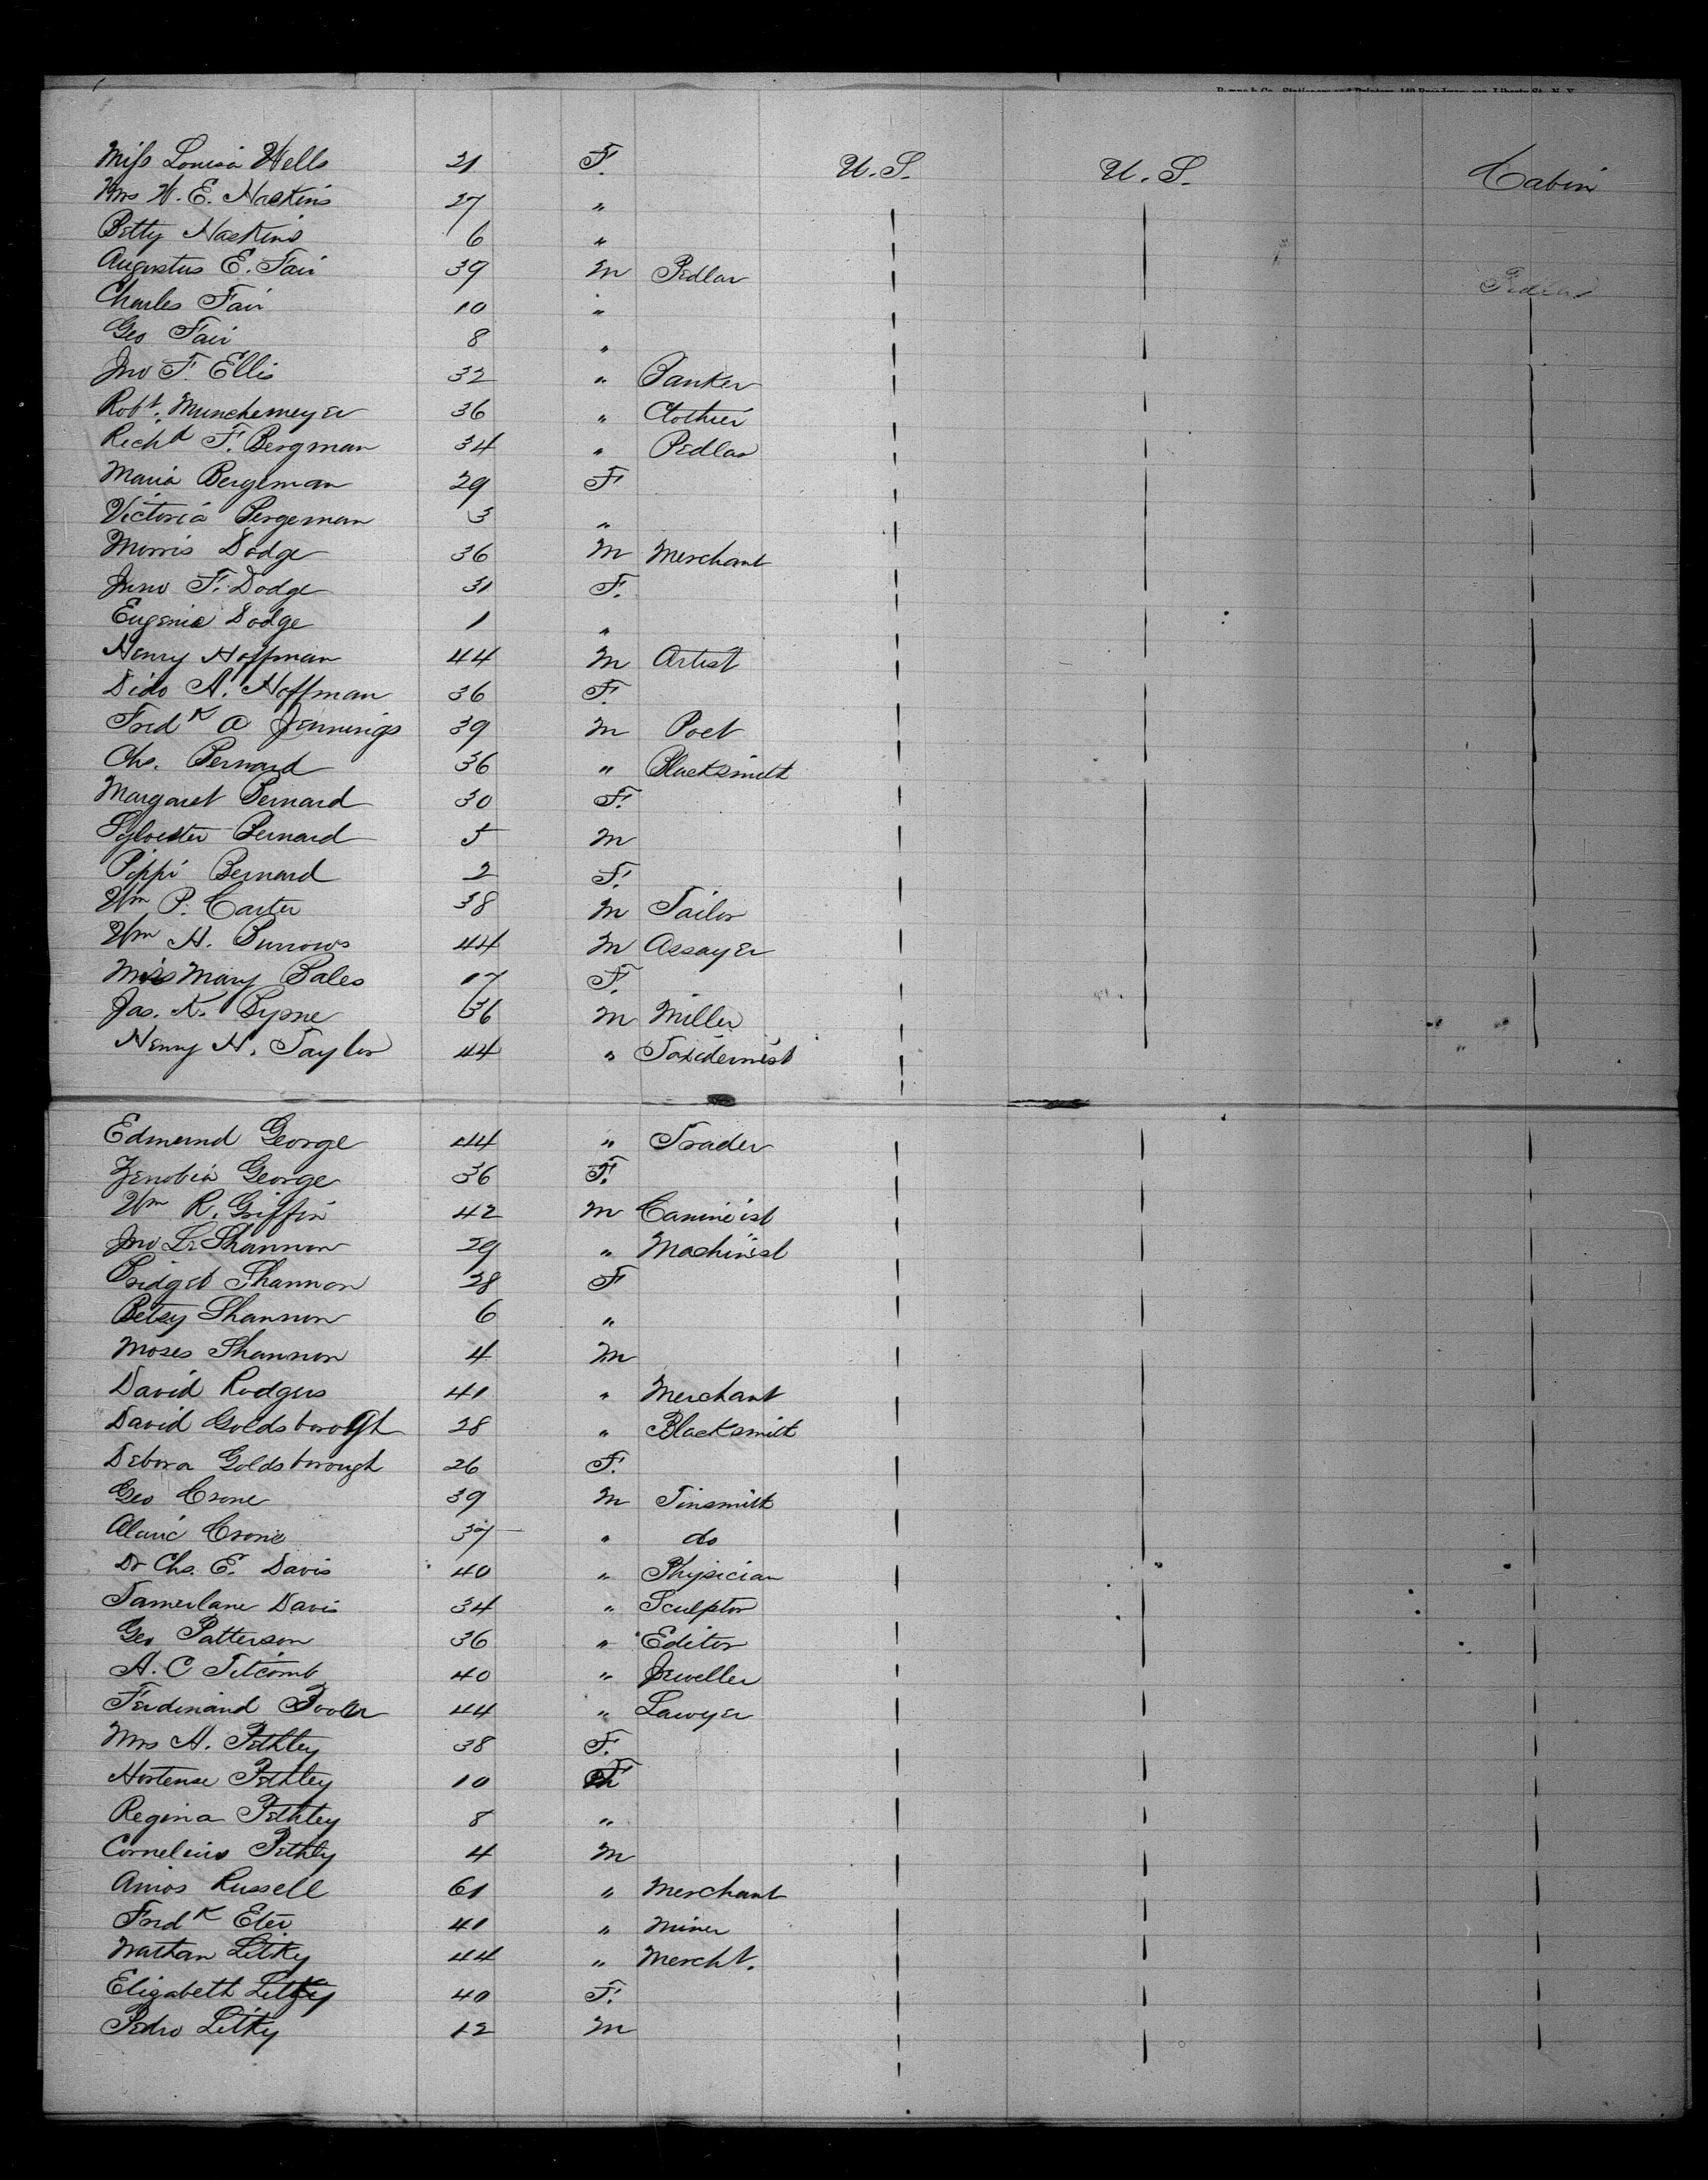 Miss Louisa Wells 21 F. U.S. U.S. Cabin
Mrs W. E. Haskins 27 "
Betty Haskins 6 "
Augustus E. Fair 39 M Pedlar
Charles Fair 10 "
Geo Fair 8 "
Jno F. Ellis 32 " Banker
Robt. Munchemeyer 36 " Clothier
Richd F. Bergman 34 " Pedlar
Maria Bergeman 29 F
Victoria Bergeman 3 "
Morris Dodge 36 M Merchant
Juno F. Dodge 31 F.
Eugenie Dodge 1 "
Henry Hoffman 44 M Artist
Dido A. Hoffman 36 F.
Fredk A Jennings 39 M Poet
Chs. Bernard 36 " Blacksmith
Margaret Bernard 30 F.
Sylvester Bernard 5 M
Pippi Bernard 2 F.
Wm P. Carter 38 M Tailor
Wm H. Burrows 44 M Assayer
Miss Mary Bales 17 F.
Jas. K. Byrne 36 M Miller
Henry H. Taylor 44 " Taxidermist
Edmund George 44 " Trader
Zenobia George 36 F.
Wm R. Griffin 42 M Canine ist
Jno L. Shannon 29 " Machinist
Bridget Shannon 28 F
Betsy Shannon 6 "
Moses Shannon 4 M
David Rodgers 41 " Merchant
David Goldsborough 28 " Blacksmith
Debora Goldsborough 26 F.
Geo Crone 39 M Tinsmith
Alaric Crone 37 " do
Dr Chs. E. Davis 40 " Physician
Tamerlane Davis 34 " Sculptor
Geo Patterson 36 " Editor
A. C Titcomb 40 " Jeweller
Ferdinand 44 " Lawyer
Mrs H. Pethley 38 F.
Hortense Pethley 10 F
Regina Pethley 8 "
Cornelius Pethly 4 M
Amos Russell 61 " Merchant
Fredk Eter 41 " Miner
Nathan Litky 44 " Mercht.
Elizabeth Litky 40 F.
Pedro Litky 12 M